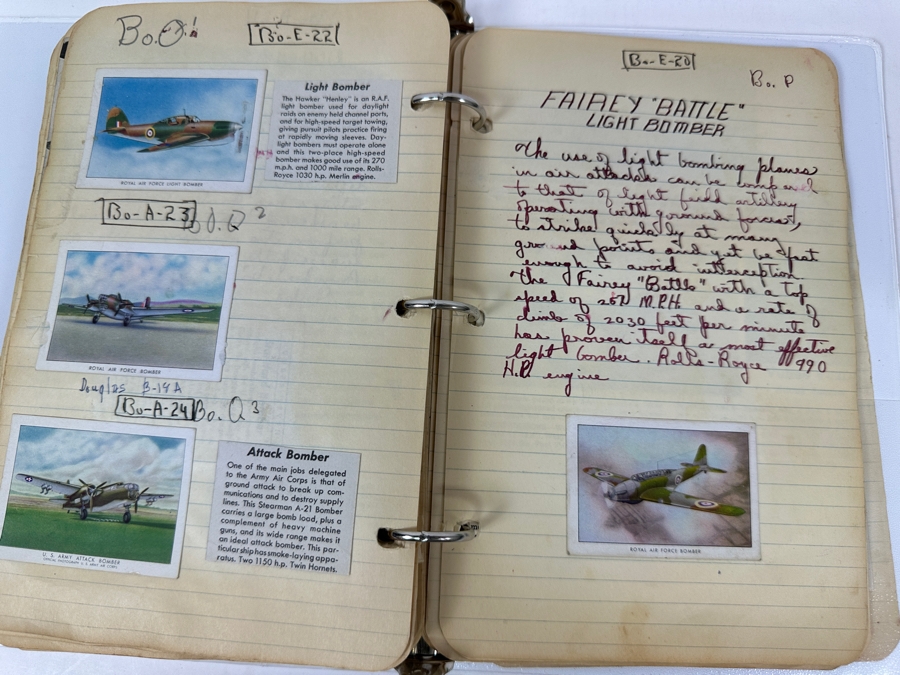 Bo. Q.1
Bo-E-22
Light Bomber
The Hawker "Henley" is an R.A.F.
light bomber used for daylight
raids on enemy held channel ports,
and for high-speed target towing,
giving pursuit pilots practice firing
at rapidly moving sleeves. Day-
light bombers must operate alone
and this two-place high-speed
bomber makes good use of its 270
m.p.h. and 1000 mile range. Rolls-
Royce 1030 h.p. Merlin engine.
ROYAL AIR FORCE LIGHT BOMBER
Bo-A-23
Bo. Q 2
ROYAL AIR FORCE BOMBER
Douglas B-18A
Bo-A-24
Bo. Q 3
Attack Bomber
One of the main jobs delegated
to the Army Air Corps is that of
ground attack to break up com-
munications and to destroy supply
lines. This Stearman A-21 Bomber
carries a large bomb load, plus a
complement of heavy machine
guns, and its wide range makes it
an ideal attack bomber. This par-
ticular ship has smoke-laying appa-
ratus. Two 1150 h.p. Twin Hornets.
U. S. ARMY ATTACK BOMBER
Bo-E-20
Bo. P
FAIREY "BATTLE"
LIGHT BOMBER
The use of light bombing planes
in air attacks can be compared
to that of light field artillery
operating with ground forces,
to strike quickly at many
ground points and yet be fast
enough to avoid interception.
The Fairey "Battle" with a top
speed of 257 M.P.H. and a rate of
climb of 2030 feet per minute
has proven itself a most effective
light bomber. Rolls-Royce 990
H.P. engine
ROYAL AIR FORCE BOMBER